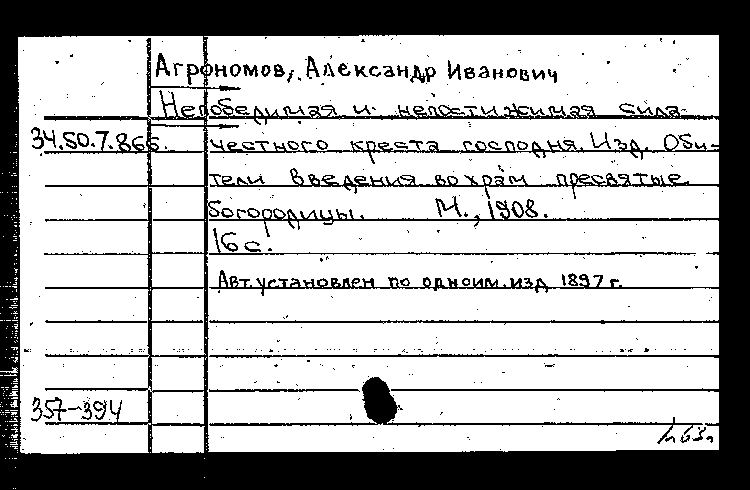 Агрономов, Александр Иванович
Непобедимая и непостижимая сила
34.50.7.866. честного креста господня. Изд. Оби-
тели введения во храм пресвятые
богородицы. М., 1908.
16 с.
Авт. установлен по одноим. изд 1897 г.
357-394